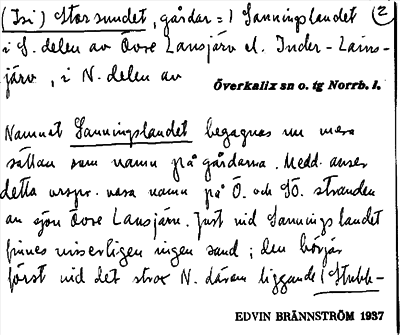 (Isi) Storsundet, gårdar = 1 Sanningslandet (2
i S. delen av Övre Lansjärv el. Inder-Lains-
järv, i N. delen av
Överkalix sn o. tg Norrb. l.
Namnet Sanningslandet begagnas nu mera
sällan som namn på gårdarna. Medd. anser
detta urspr. vara namn på Ö. och SÖ. stranden
av sjön Övre Lansjärv. Just vid Sanningslandet
finnes visserligen ingen sand; den börjar
först vid det strax N. därom liggande (Stubb-
EDVIN BRÄNNSTRÖM 1937